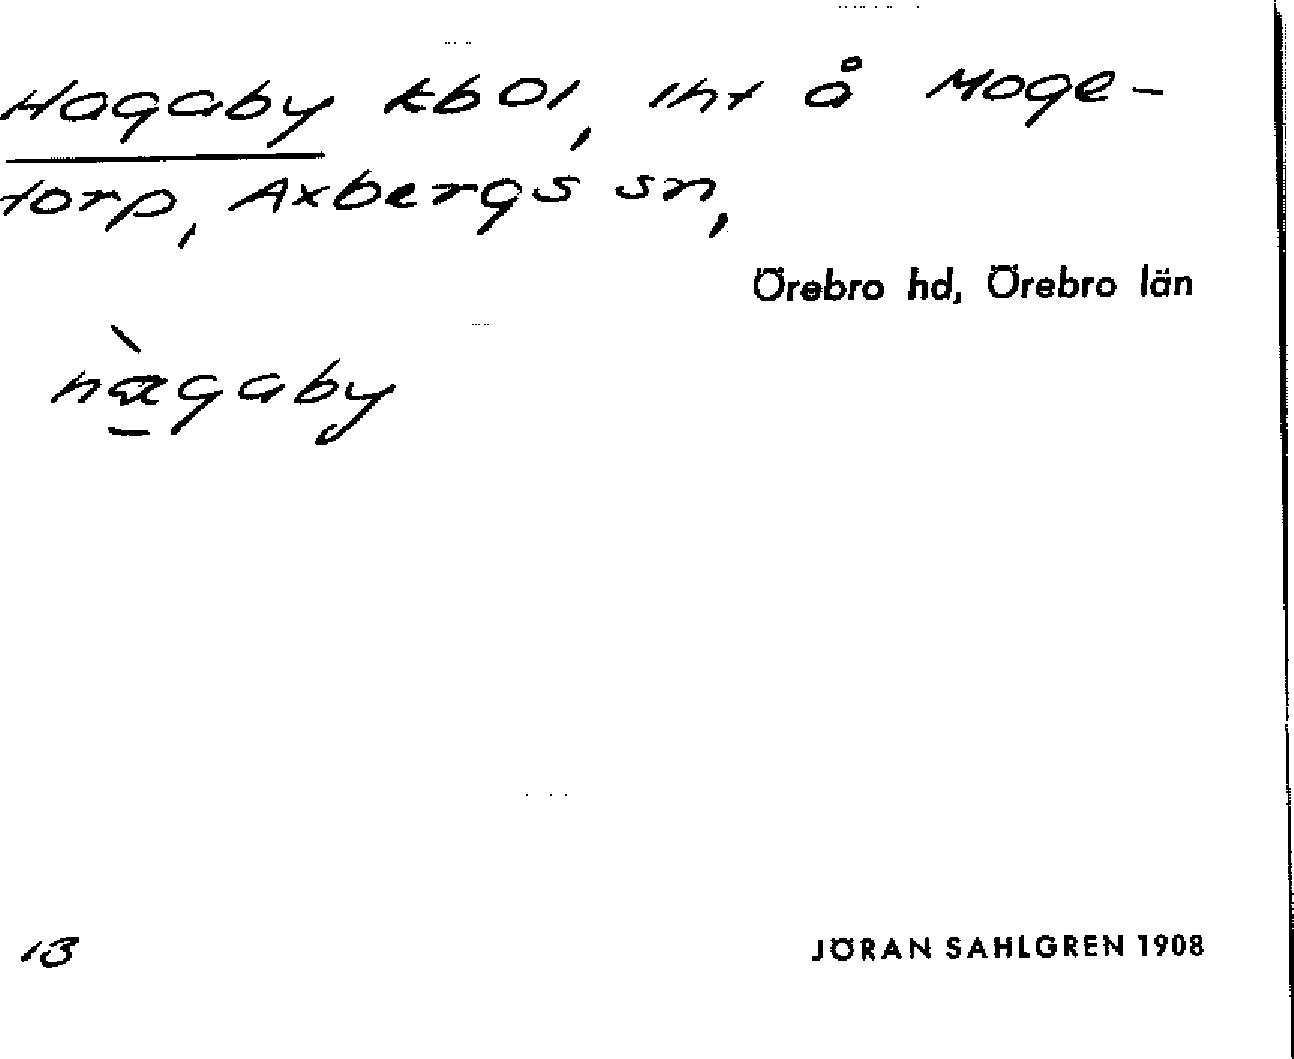 Hagaby kbol, lht å Moge-
torp, Axbergs sn,
Örebro hd, Örebro län
hàgaby
13
JÖRAN SAHLGREN 1908